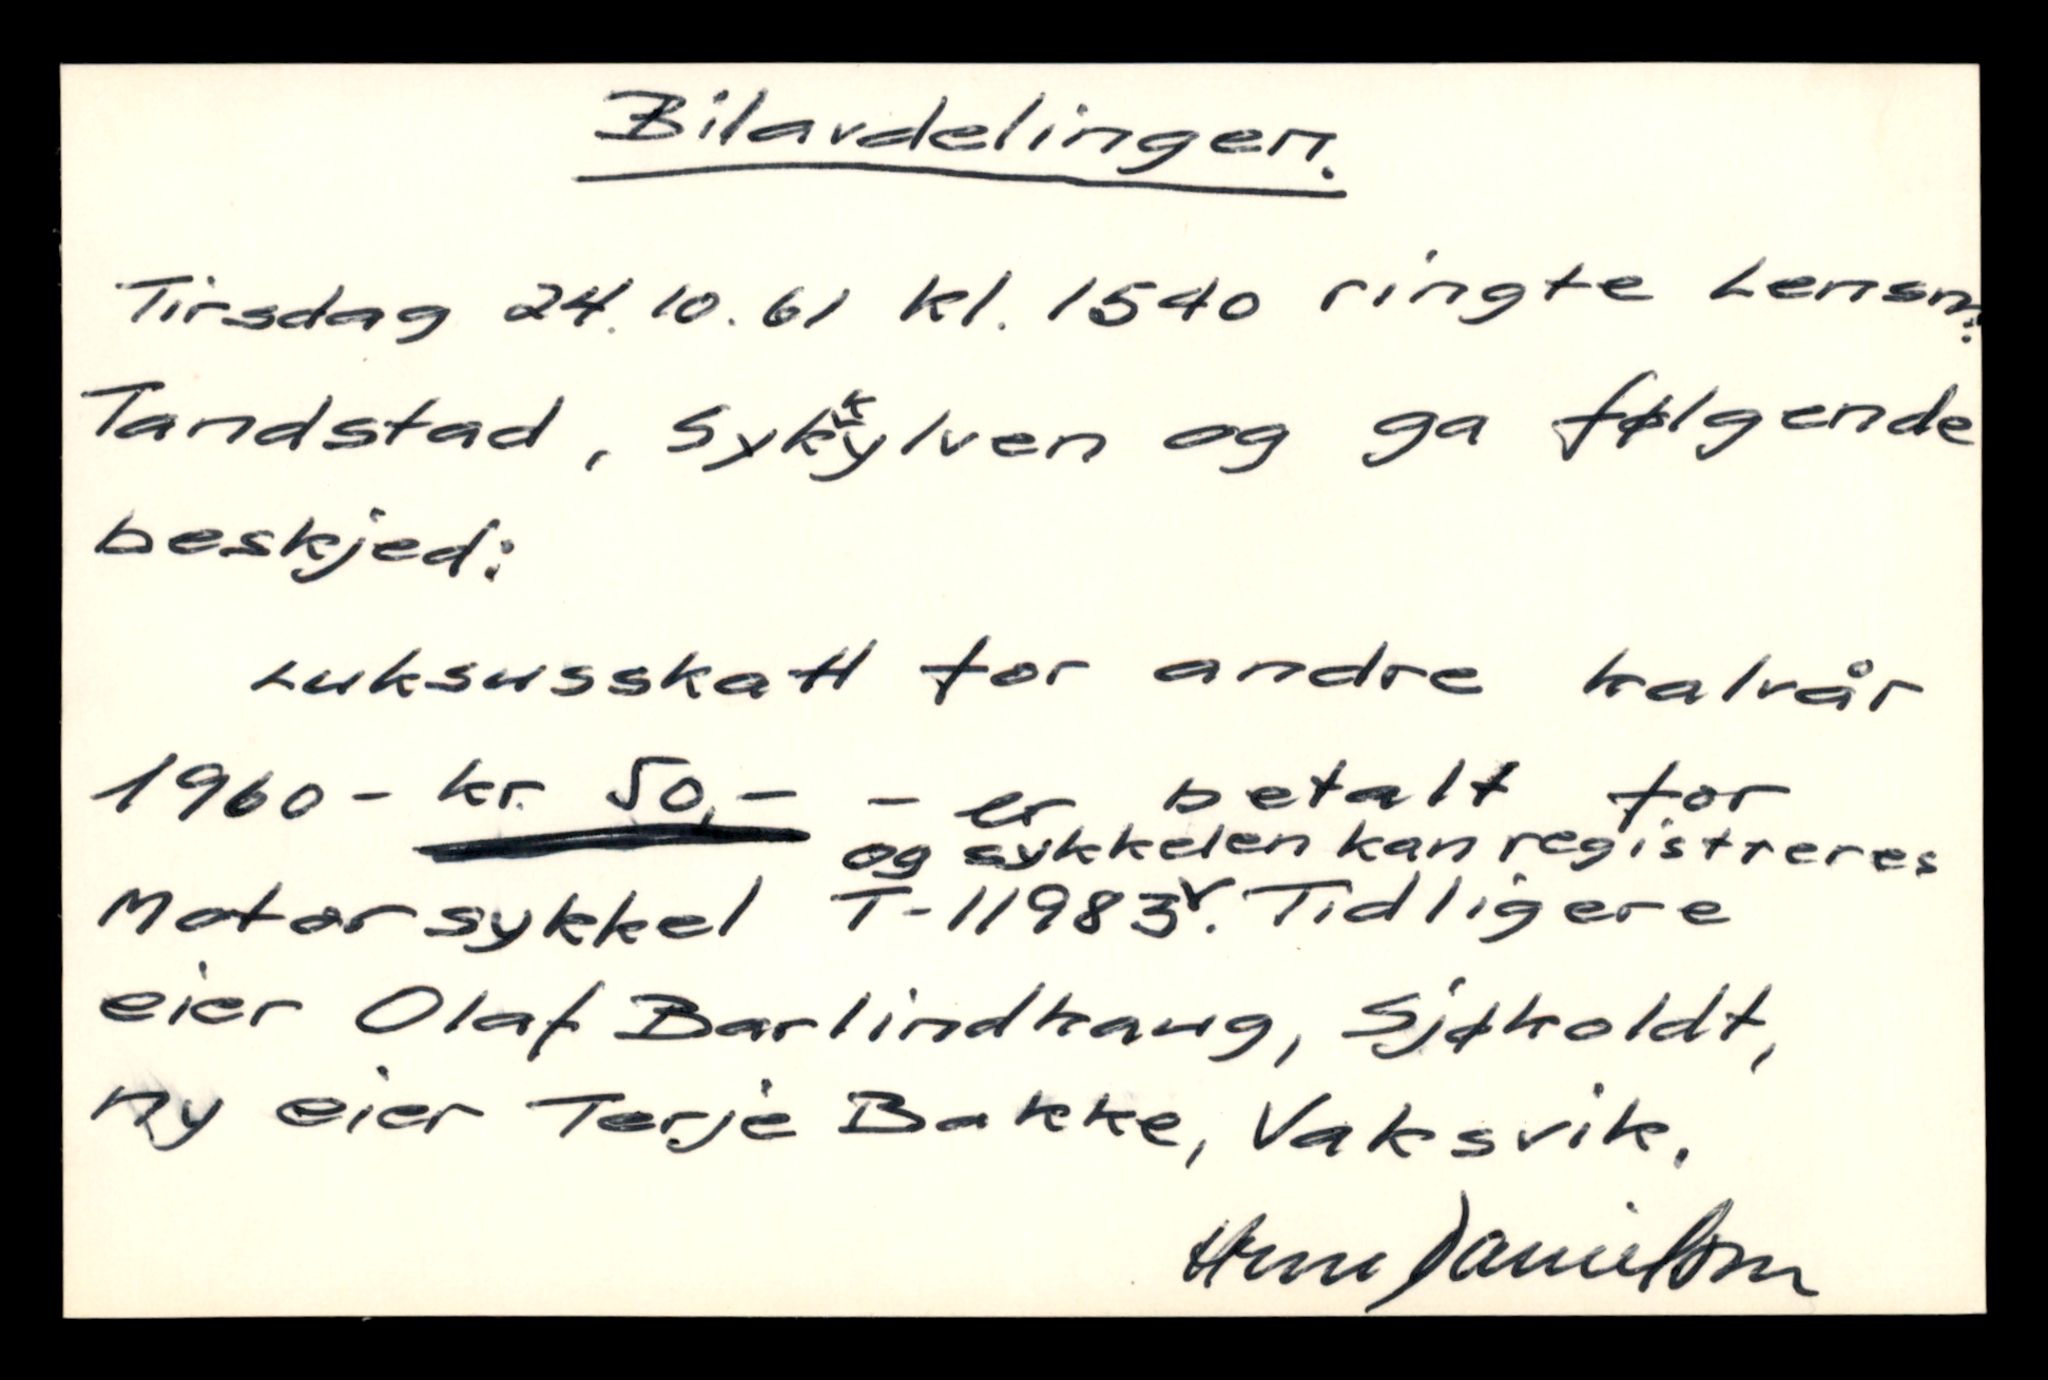 Bilavdelingen.
Tirsdag 24.10.61 kl. 1540 ringte Lensm.
Tandstad, Sykkylven og ga følgende
beskjed:
Luksusskatt for andre halvår
1960 - kr. 50,- - er betalt for
og sykkelen kan registreres
Motorsykkel T-11983. Tidligere
eier Olaf Barlindhaug, Sjøholdt,
ny eier Terje Bakke, Vaksvik.
Danielsen